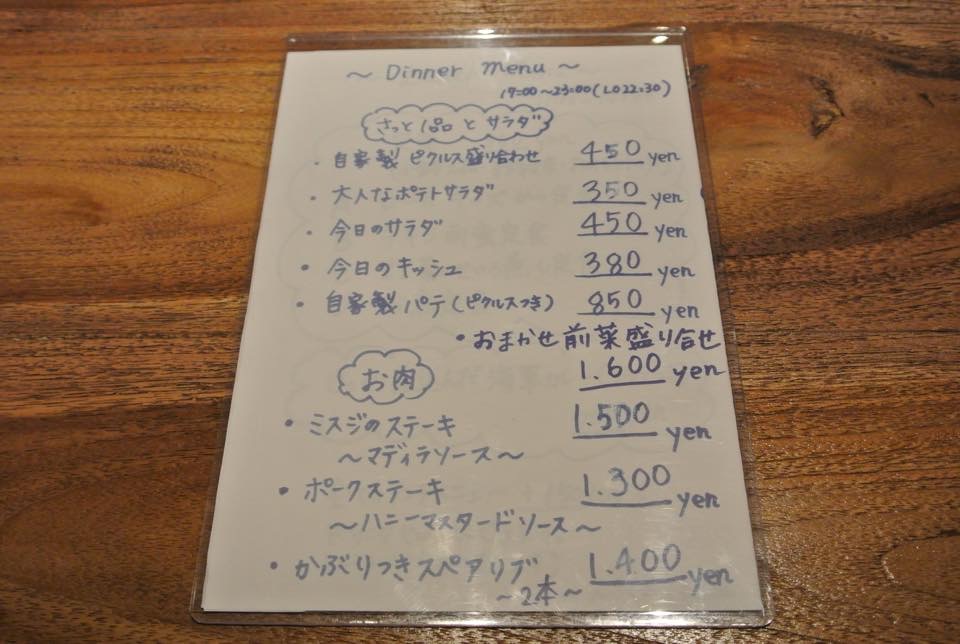 ～ Dinner menu ～
17:00～23:00(LO22:30)
さっと1品とサラダ
・自家製ピクルス盛り合わせ 450 yen
・大人なポテトサラダ 350 yen
・今日のサラダ 450 yen
・今日のキッシュ 380 yen
・自家製パテ(ピクルスつき) 850 yen
・おまかせ前菜盛り合せ
1.600 yen
お肉
・ミスジのステーキ 1.500 yen
～マディラソース～
・ポークステーキ 1.300 yen
～ハニーマスタードソース～
・かぶりつきスペアリブ 1.400 yen
～2本～